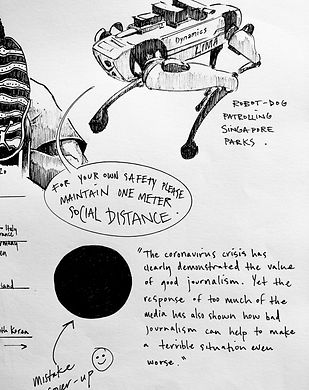 Dynamics
LIMA
ROBOT-DOG
PATROLLING
SINGAPORE
PARKS.
FOR YOUR OWN SAFETY PLEASE
MAINTAIN ONE METER
SOCIAL DISTANCE.
20
- Italy
rance
rmany
en
land
th Korea
"The coronavirus crisis has
clearly demonstrated the value
of good journalism. Yet the
response of too much of the
media has also shown how bad
journalism can help to make
a terrible situation even
worse."
mistake
cover-up